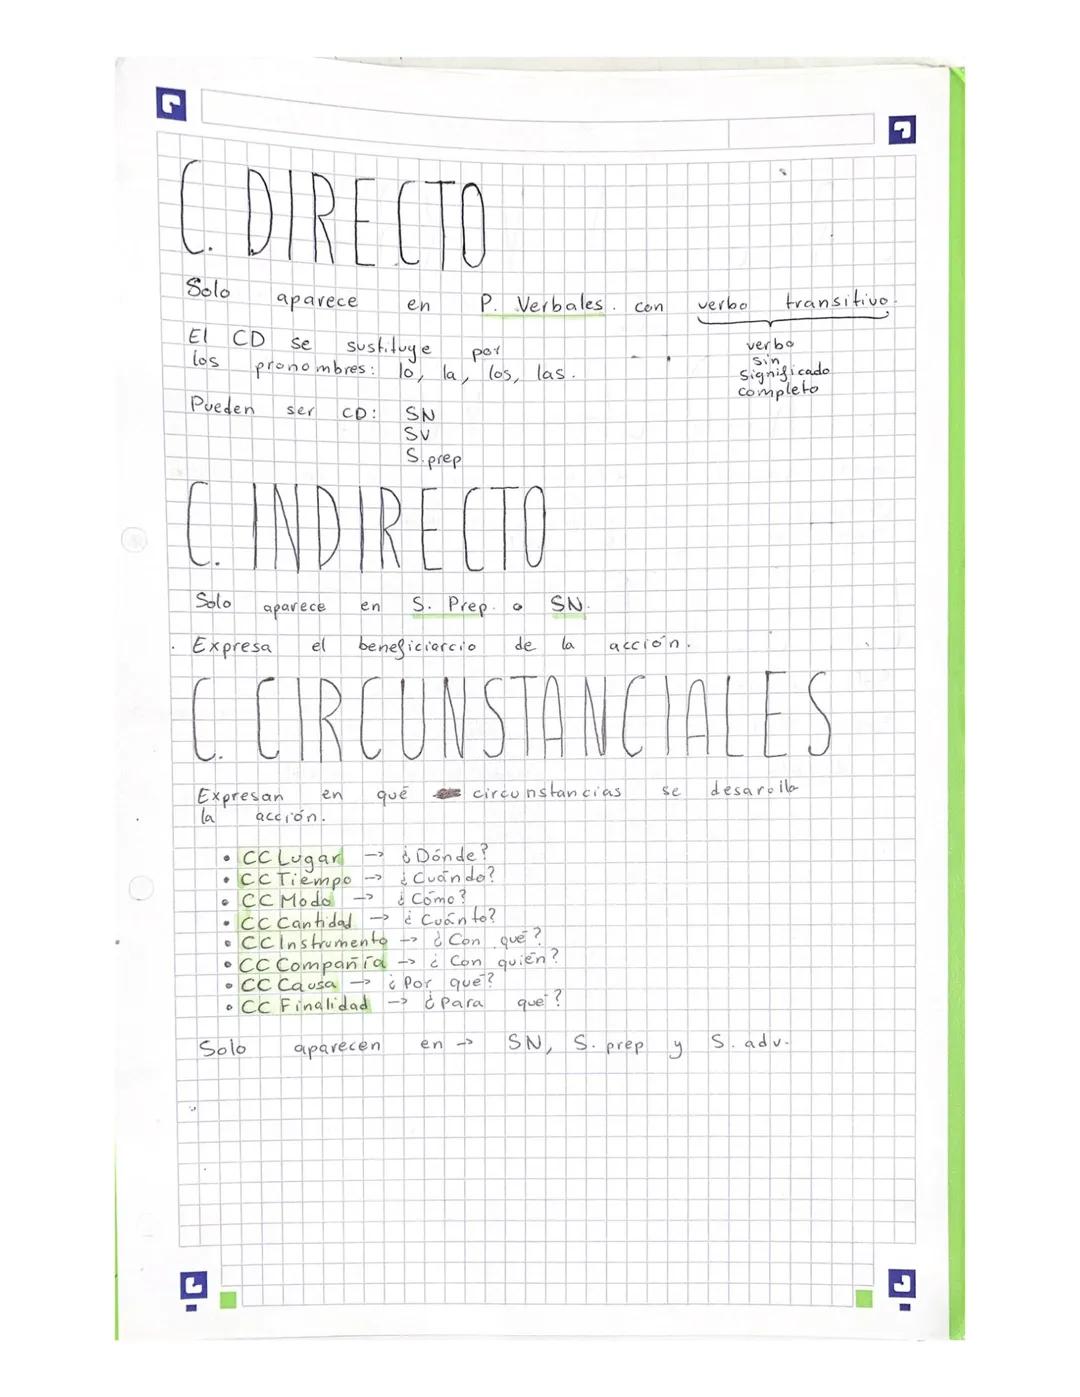 C. DIRECTO
Solo aparece en P. Verbales. con verbo transitivo.
verbo
sin
significado
completo
El CD se sustituye por
los pronombres: lo, la, los, las.
Pueden ser CD: SN
SV
S.prep
C. INDIRECTO
Solo aparece en S. Prep. o SN.
Expresa el beneficiarcio de la acción.
C. CIRCUNSTANCIALES
Expresan en qué circunstancias se desarolla
la acción.
• CC Lugar -> ¿Dónde?
• CC Tiempo -> ¿Cuándo?
• CC Modo -> ¿Cómo?
• CC Cantidad -> ¿Cuánto?
• CC Instrumento -> ¿Con qué?
• CC Compañía -> ¿Con quién?
• CC Causa -> ¿Por qué?
• CC Finalidad -> ¿Para qué?
Solo aparecen en -> SN, S. prep y S. adv.